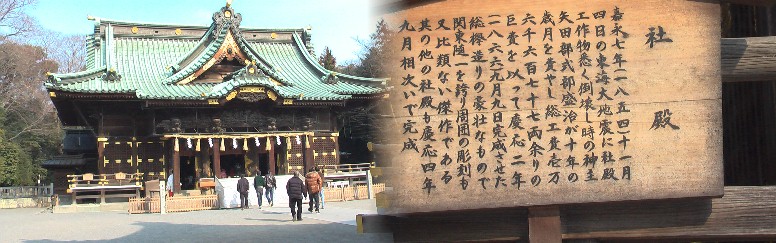 社殿
嘉永七年(一八五四)十一月
四日の東海大地震に社殿
工作物悉く倒壊し時の神主
矢田部式部盛治が十年の
歳月を費やし総工費壱万
六千六百七十七両余りの
巨費を以って慶応二年
一八六六九月九日完成させた
総欅造りの豪壮なもので
関東随一を誇り周囲の彫刻も
又比類ない傑作である
其の他の社殿も慶応四年
九月相次いで完成